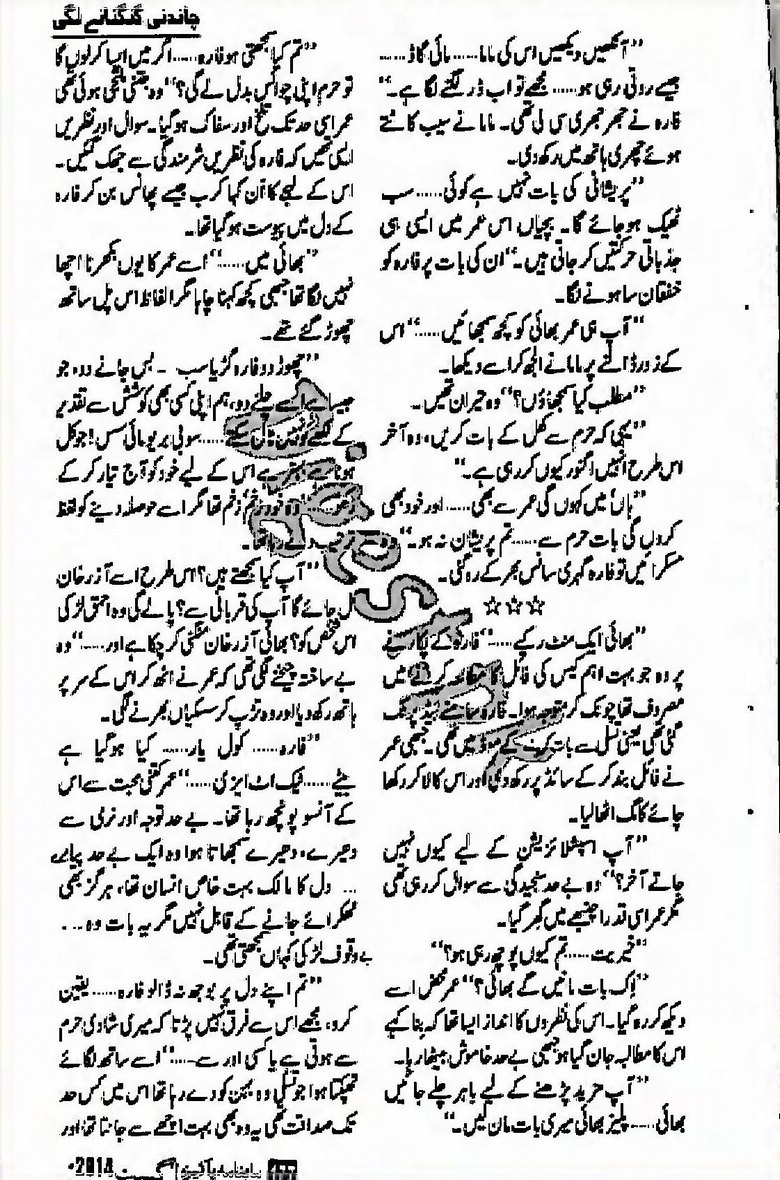 چاندنی گنگنانے لگی
”آنکھیں دیکھیں اس کی ماما...... مائی گاڈ......
جیسے روتی رہی ہو...... مجھے تو اب ڈر لگنے لگا ہے۔“
فارہ نے جھر جھری سی لی تھی۔ ماما نے سیب کاٹتے
ہوئے چھری ہاتھ میں رکھ دی۔
”پریشانی کی بات نہیں ہے کوئی...... سب
ٹھیک ہوجائے گا۔ بچیاں اس عمر میں ایسی ہی
جذباتی حرکتیں کر جاتی ہیں۔“ ان کی بات پر فارہ کو
خفقان سا ہونے لگا۔
”آپ ہی عمر بھائی کو کچھ سمجھائیں......“ اس
کے زور ڈالنے پر ماما نے الجھ کر اسے دیکھا۔
”مطلب کیا سمجھاؤں؟“ وہ حیران تھیں۔
”یہی کہ حرم سے کھل کے بات کریں، وہ آخر
اس طرح انہیں اگنور کیوں کر رہی ہے۔“
”ہاں میں کہوں گی عمر سے بھی...... اور خود بھی
کروں گی بات حرم سے...... تم پریشان نہ ہو۔“ وہ
مسکرائیں تو فارہ گہری سانس بھر کے رہ گئی۔
☆☆☆
”بھائی ایک منٹ رکیے......“ فارہ کے پکارنے
پر وہ جو بہت اہم کیس کی فائل کا مطالعہ کرنے میں
مصروف تھا چونک کر متوجہ ہوا۔ فارہ سامنے بیڈ پر ٹک
گئی تھی یعنی تسلی سے بات کرنے کے موڈ میں تھی۔ جبھی عمر
نے فائل بند کر کے سائڈ پر رکھ دی اور اس کا لا کر رکھا
چائے کا مگ اٹھا لیا۔
”آپ اسپیشلائزیشن کے لیے کیوں نہیں
جاتے آخر؟“ وہ بے حد سنجیدگی سے سوال کر رہی تھی
مگر عمر اسی قدر اچنبھے میں گھر گیا۔
”خیریت...... تم کیوں پوچھ رہی ہو؟“
”اِک بات مانیں گے بھائی؟“ عمر محض اسے
دیکھ کر رہ گیا۔ اس کی نظروں کا انداز ایسا تھا کہ بنا کہے
اس کا مطالبہ جان گیا ہو جبھی بے حد خاموش بیٹھا رہا۔
”آپ مزید پڑھنے کے لیے باہر چلے جائیں
بھائی...... پلیز بھائی میری بات مان لیں۔“
”تم کیا سمجھتی ہو فارہ...... اگر میں ایسا کرلوں گا
تو حرم اپنی چوائس بدل لے گی؟“ وہ جتنی ملتجی ہوئی تھی
عمر اسی حد تک تلخ اور سفاک ہوگیا۔ سوال اور نظریں
ایسی تھیں کہ فارہ کی نظریں شرمندگی سے جھک گئیں۔
اس کے لہجے کا اَن کہا کرب جیسے پھانس بن کر فارہ
کے دل میں پیوست ہوگیا تھا۔
”بھائی میں......“ اسے عمر کا یوں بکھرنا اچھا
نہیں لگا تھا جبھی کچھ کہنا چاہا مگر الفاظ اس پل ساتھ
چھوڑ گئے تھے۔
”چھوڑ دو فارہ گڑیا سب۔ بس جانے دو، جو
جیسا ہے اسے چلنے دو، ہم اپنی کسی بھی کوشش سے تقدیر
کے لکھے کو نہیں ٹال سکتے...... سو بی بریو مائی سس! جو کل
ہونا ہے بہتر ہے اس کے لیے خود کو آج تیار کر کے
رکھو......“ وہ خود زخم زخم تھا مگر اسے حوصلہ دینے کو لفظ
ترتیب دے رہا تھا۔
”آپ کیا سمجھتے ہیں؟ اس طرح اسے آزر خان
مل جائے گا آپ کی قربانی سے؟ پالے گی وہ احمق لڑکی
اس شخص کو؟ بھائی آزر خان منگنی کر چکا ہے اور......“ وہ
بے ساختہ چیخنے لگی تھی کہ عمر نے اٹھ کر اس کے سر پر
ہاتھ رکھ دیا اور وہ تڑپ کر سسکیاں بھرنے لگی۔
”فارہ...... کول یار...... کیا ہوگیا ہے
بیٹے...... ٹیک اٹ ایزی......“ عمر کتنی محبت سے اس
کے آنسو پونچھ رہا تھا۔ بے حد توجہ اور نرمی سے
دھیرے، دھیرے سمجھاتا ہوا وہ ایک بے حد پیارے
... دل کا مالک بہت خاص انسان تھا، ہرگز بھی
ٹھکرائے جانے کے قابل نہیں مگر یہ بات وہ...
بے وقوف لڑکی کہاں سمجھتی تھی۔
”تم اپنے دل پر بوجھ نہ ڈالو فارہ...... یقین
کرو، مجھے اس سے فرق نہیں پڑتا کہ میری شادی حرم
سے ہوتی ہے یا کسی اور سے......“ اسے ساتھ لگائے
تھپکتا ہوا جو تسلی وہ بہن کو دے رہا تھا اس میں کس حد
تک صداقت تھی یہ وہ بھی بہت اچھے سے جانتا تھا، اور
ماہنامہ پاکیزہ اگست 2014ء